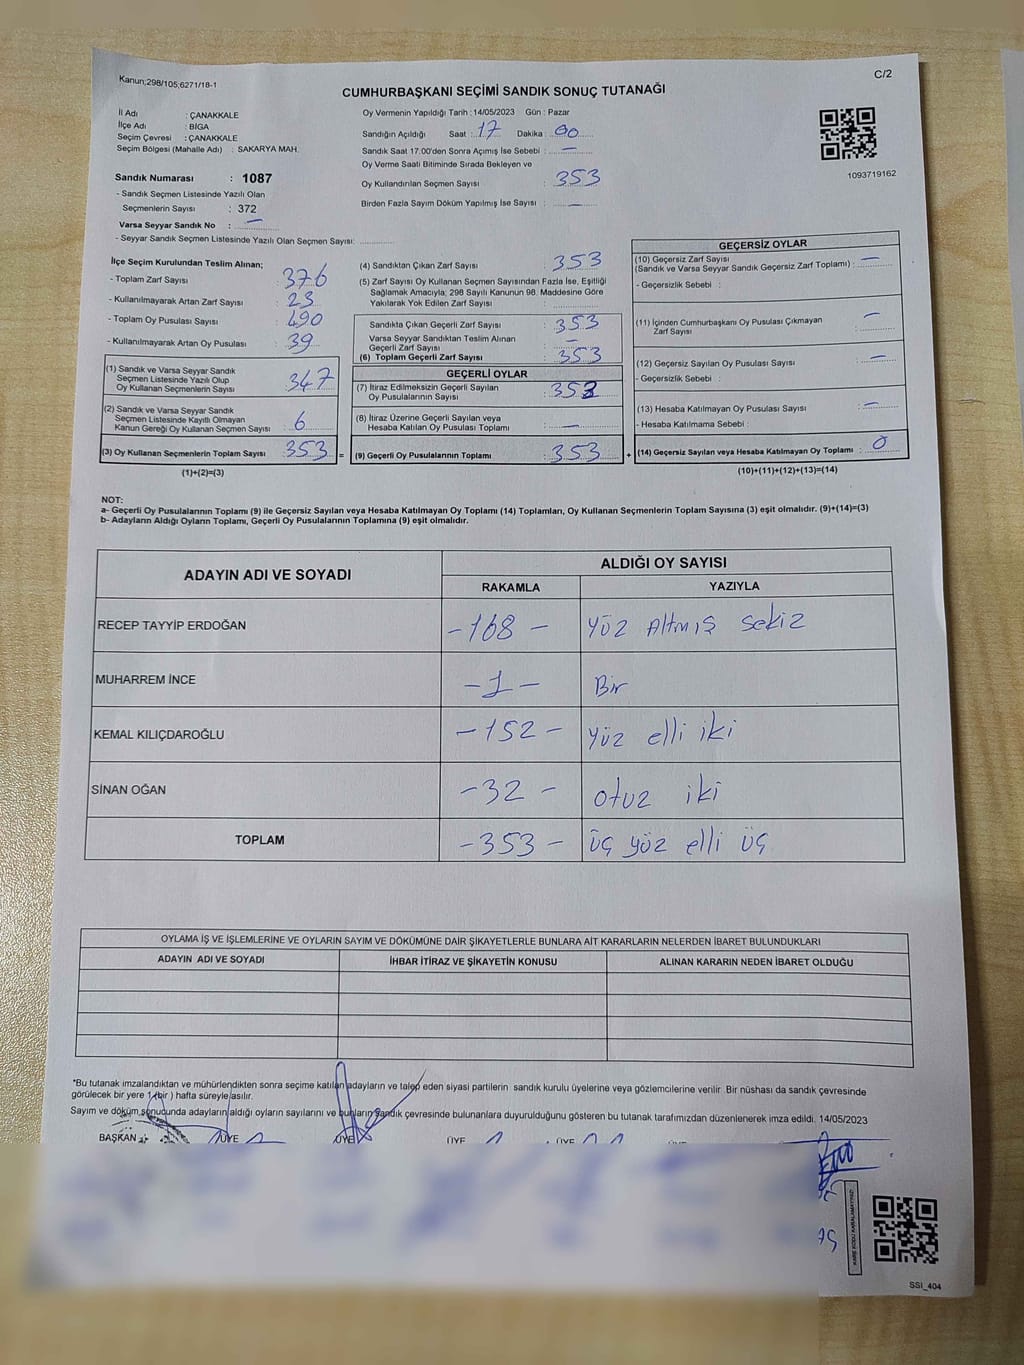 Kanun;298/105;6271/18-1
C/2
CUMHURBAŞKANI SEÇİMİ SANDIK SONUÇ TUTANAĞI
İl Adı : ÇANAKKALE
İlçe Adı : BİGA
Seçim Çevresi : ÇANAKKALE
Seçim Bölgesi (Mahalle Adı) : SAKARYA MAH.
Sandık Numarası : 1087
- Sandık Seçmen Listesinde Yazılı Olan
Seçmenlerin Sayısı : 372
Varsa Seyyar Sandık No : —
- Seyyar Sandık Seçmen Listesinde Yazılı Olan Seçmen Sayısı: ............
Oy Vermenin Yapıldığı Tarih : 14/05/2023 Gün : Pazar
Sandığın Açıldığı Saat : 17 Dakika : 00
Sandık Saat 17:00'den Sonra Açımış İse Sebebi : —
Oy Verme Saati Bitiminde Sırada Bekleyen ve
Oy Kullandırılan Seçmen Sayısı : 353
Birden Fazla Sayım Döküm Yapılmış İse Sayısı : —
1093719162
İlçe Seçim Kurulundan Teslim Alınan;
- Toplam Zarf Sayısı : 376
- Kullanılmayarak Artan Zarf Sayısı : 23
- Toplam Oy Pusulası Sayısı : 490
- Kullanılmayarak Artan Oy Pusulası : 39
(1) Sandık ve Varsa Seyyar Sandık
Seçmen Listesinde Yazılı Olup
Oy Kullanan Seçmenlerin Sayısı : 347
(2) Sandık ve Varsa Seyyar Sandık
Seçmen Listesinde Kayıtlı Olmayan
Kanun Gereği Oy Kullanan Seçmen Sayısı : 6
(3) Oy Kullanan Seçmenlerin Toplam Sayısı : 353 =
(1)+(2)=(3)
(4) Sandıktan Çıkan Zarf Sayısı : 353
(5) Zarf Sayısı Oy Kullanan Seçmen Sayısından Fazla İse, Eşitliği
Sağlamak Amacıyla; 298 Sayılı Kanunun 98. Maddesine Göre
Yakılarak Yok Edilen Zarf Sayısı :
Sandıkta Çıkan Geçerli Zarf Sayısı : 353
Varsa Seyyar Sandıktan Teslim Alınan
Geçerli Zarf Sayısı : —
(6) Toplam Geçerli Zarf Sayısı : 353
GEÇERLİ OYLAR
(7) İtiraz Edilmeksizin Geçerli Sayılan
Oy Pusulalarının Sayısı : 353
(8) İtiraz Üzerine Geçerli Sayılan veya
Hesaba Katılan Oy Pusulası Toplamı : —
(9) Geçerli Oy Pusulalarının Toplamı : 353 +
GEÇERSİZ OYLAR
(10) Geçersiz Zarf Sayısı
(Sandık ve Varsa Seyyar Sandık Geçersiz Zarf Toplamı) : —
- Geçersizlik Sebebi :
(11) İçinden Cumhurbaşkanı Oy Pusulası Çıkmayan
Zarf Sayısı : —
(12) Geçersiz Sayılan Oy Pusulası Sayısı : —
- Geçersizlik Sebebi :
(13) Hesaba Katılmayan Oy Pusulası Sayısı : —
- Hesaba Katılmama Sebebi :
(14) Geçersiz Sayılan veya Hesaba Katılmayan Oy Toplamı : 0
(10)+(11)+(12)+(13)=(14)
NOT:
a- Geçerli Oy Pusulalarının Toplamı (9) ile Geçersiz Sayılan veya Hesaba Katılmayan Oy Toplamı (14) Toplamları, Oy Kullanan Seçmenlerin Toplam Sayısına (3) eşit olmalıdır. (9)+(14)=(3)
b- Adayların Aldığı Oyların Toplamı, Geçerli Oy Pusulalarının Toplamına (9) eşit olmalıdır.
ADAYIN ADI VE SOYADI
ALDIĞI OY SAYISI
RAKAMLA YAZIYLA
RECEP TAYYİP ERDOĞAN -168- Yüz Altmış Sekiz
MUHARREM İNCE -1- Bir
KEMAL KILIÇDAROĞLU -152- Yüz elli iki
SİNAN OĞAN -32- otuz iki
TOPLAM -353- üç yüz elli üç
OYLAMA İŞ VE İŞLEMLERİNE VE OYLARIN SAYIM VE DÖKÜMÜNE DAİR ŞİKAYETLERLE BUNLARA AİT KARARLARIN NELERDEN İBARET BULUNDUKLARI
ADAYIN ADI VE SOYADI İHBAR İTİRAZ VE ŞİKAYETİN KONUSU ALINAN KARARIN NEDEN İBARET OLDUĞU
*Bu tutanak imzalandıktan ve mühürlendikten sonra seçime katılan adayların ve talep eden siyasi partilerin sandık kurulu üyelerine veya gözlemcilerine verilir. Bir nüshası da sandık çevresinde
görülecek bir yere 1 (bir) hafta süreyle asılır.
Sayım ve döküm sonucunda adayların aldığı oyların sayılarını ve bunların sandık çevresinde bulunanlara duyurulduğunu gösteren bu tutanak tarafımızdan düzenlenerek imza edildi. 14/05/2023
BAŞKAN ÜYE ÜYE ÜYE ÜYE ÜYE
SSI_404